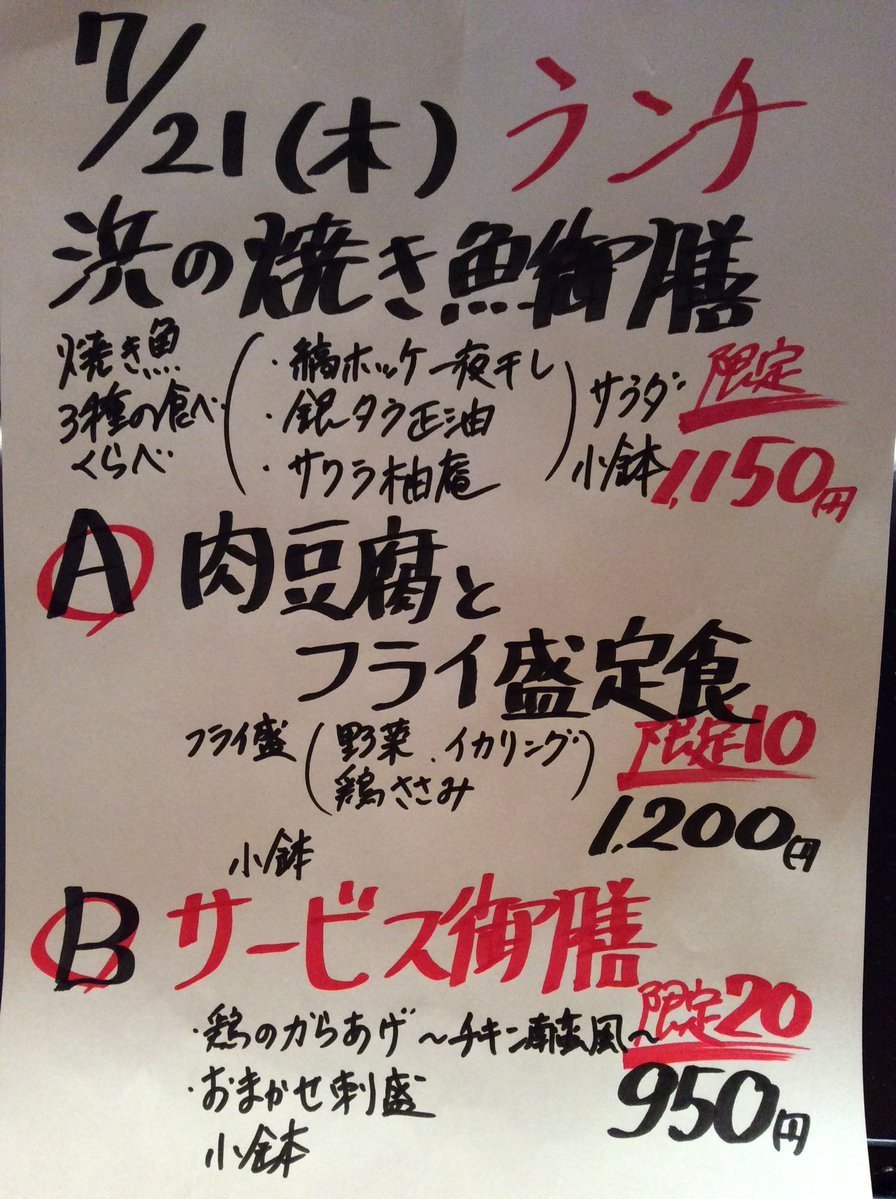 7/21(木) ランチ
浜の焼き魚御膳
焼き魚
3種の食べ
くらべ
・縞ホッケ一夜干し
・銀タラ正油
・サワラ柚庵
サラダ
小鉢
限定
1,150円
A 肉豆腐と
フライ盛定食
フライ盛(野菜、イカリング)
鶏ささみ
限定10
1,200円
小鉢
B サービス御膳
限定20
・鶏のからあげ〜チキン南蛮風〜
・おまかせ刺盛
950円
小鉢